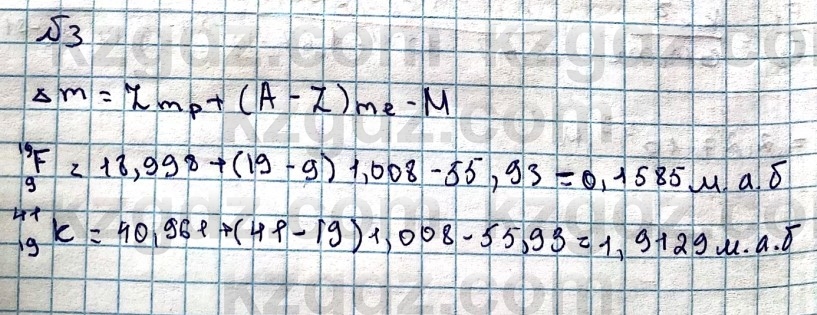 №3
Δm = Zmp + (A - Z)me - M
¹⁹₉F = 18,998 + (19 - 9) 1,008 - 55,93 = 0,1585 м.а.б
⁴¹₁₉K = 40,961 + (41 - 19) 1,008 - 55,93 = 1,9129 м.а.б
kzgdz.com